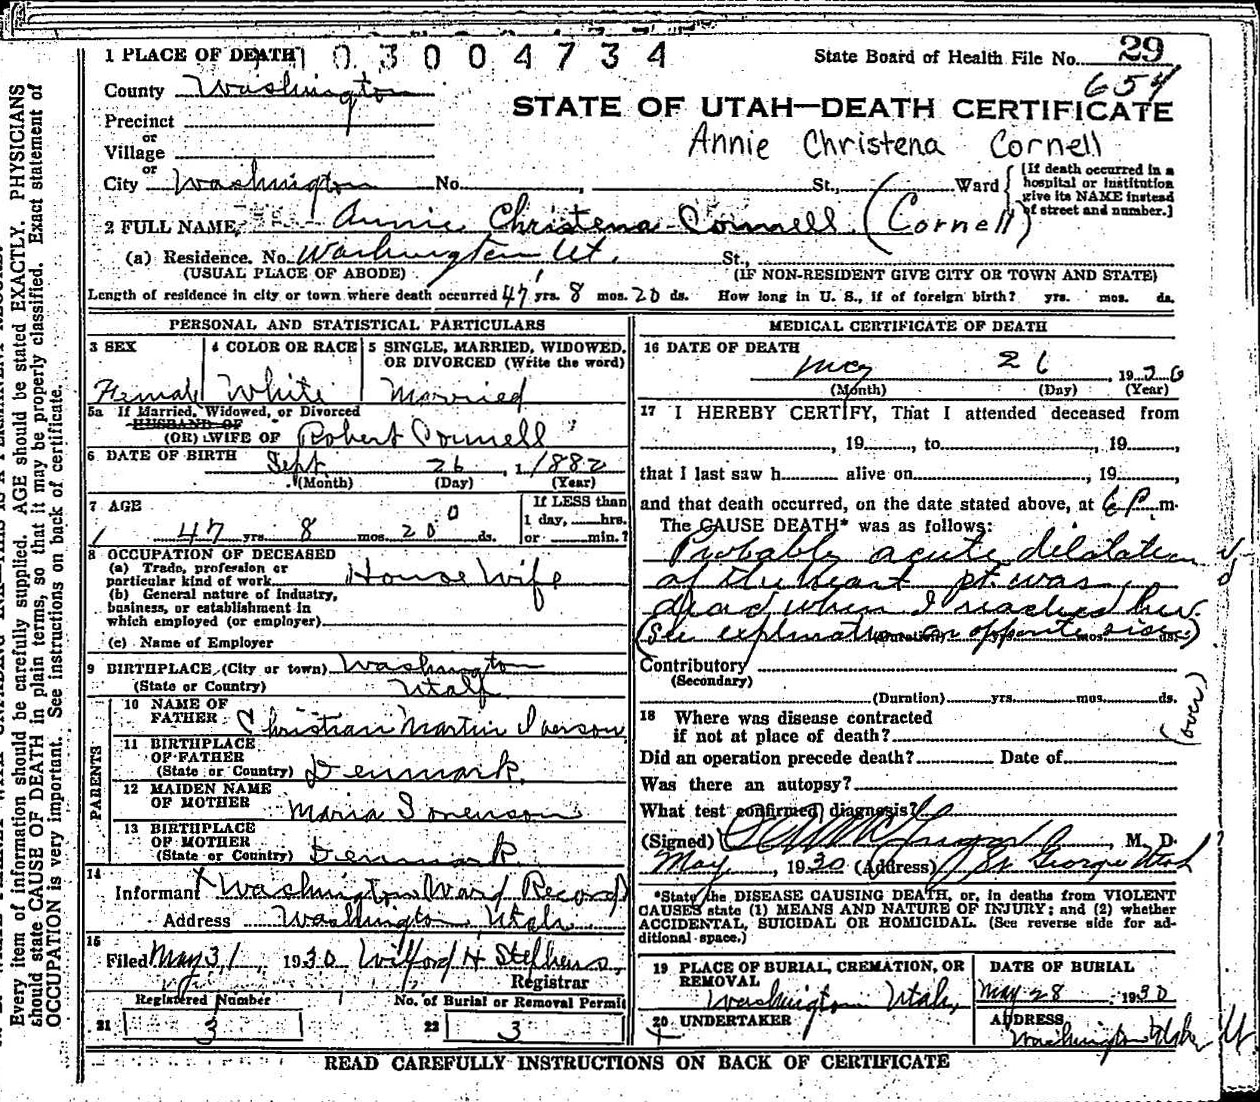 1 PLACE OF DEATH 1030004734 State Board of Health File No. 29
654
County Washington
STATE OF UTAH—DEATH CERTIFICATE
Precinct
or
Village
Annie Christena Cornell
or
City Washington No. , St., Ward
[If death occurred in a
hospital or institution
give its NAME instead
of street and number.]
2 FULL NAME Annie Christena Cornell (Cornell)
(a) Residence. No. Washington Ut. St.,
(USUAL PLACE OF ABODE) (IF NON-RESIDENT GIVE CITY OR TOWN AND STATE)
Length of residence in city or town where death occurred 47 yrs. 8 mos. 20 ds. How long in U. S., if of foreign birth? yrs. mos. ds.
PERSONAL AND STATISTICAL PARTICULARS
3 SEX 4 COLOR OR RACE 5 SINGLE, MARRIED, WIDOWED,
OR DIVORCED (Write the word)
Female White Married
5a If Married, Widowed, or Divorced
HUSBAND OF
(OR) WIFE OF Robert Cornell
6 DATE OF BIRTH Sept 26, 1 1882
(Month) (Day) (Year)
7 AGE If LESS than
1 day, hrs.
47 yrs. 8 mos. 20 ds. or min.?
8 OCCUPATION OF DECEASED
(a) Trade, profession or
particular kind of work House Wife
(b) General nature of industry,
business, or establishment in
which employed (or employer)
(c) Name of Employer
9 BIRTHPLACE (City or town) Washington
(State or Country) Utah
PARENTS
10 NAME OF
FATHER Christian Martin Iverson
11 BIRTHPLACE
OF FATHER
(State or Country) Denmark
12 MAIDEN NAME
OF MOTHER Maria Sorenson
13 BIRTHPLACE
OF MOTHER
(State or Country) Denmark
14
Informant Washington Ward Record
Address Washington Utah
15
Filed May 31, 1930 Wilford H Stephens,
Registrar
Registered Number No. of Burial or Removal Permit
21 3 22 3
MEDICAL CERTIFICATE OF DEATH
16 DATE OF DEATH
May 26, 19
(Month) (Day) (Year)
17 I HEREBY CERTIFY, That I attended deceased from
, 19, to , 19
that I last saw h alive on , 19
and that death occurred, on the date stated above, at 6 P. m.
The CAUSE DEATH* was as follows:
Probably acute dilatation
of the heart pt. was
dead when I reached her.
(See explanation on opposite side)
(Duration) yrs. mos. ds.
Contributory
(Secondary)
(Duration) yrs. mos. ds.
(over)
18 Where was disease contracted
if not at place of death?
Did an operation precede death? Date of
Was there an autopsy?
What test confirmed diagnosis?
(Signed) M. D.
May, 1930 (Address) St George Utah
*State the DISEASE CAUSING DEATH, or, in deaths from VIOLENT
CAUSES state (1) MEANS AND NATURE OF INJURY; and (2) whether
ACCIDENTAL, SUICIDAL OR HOMICIDAL. (See reverse side for ad-
ditional space.)
19 PLACE OF BURIAL, CREMATION, OR
REMOVAL
Washington Utah,
DATE OF BURIAL
May 28, 1930
20 UNDERTAKER
ADDRESS
Washington
READ CAREFULLY INSTRUCTIONS ON BACK OF CERTIFICATE
Every item of information should be carefully supplied. AGE should be stated EXACTLY. PHYSICIANS
should state CAUSE OF DEATH in plain terms, so that it may be properly classified. Exact statement of
OCCUPATION is very important. See instructions on back of certificate.